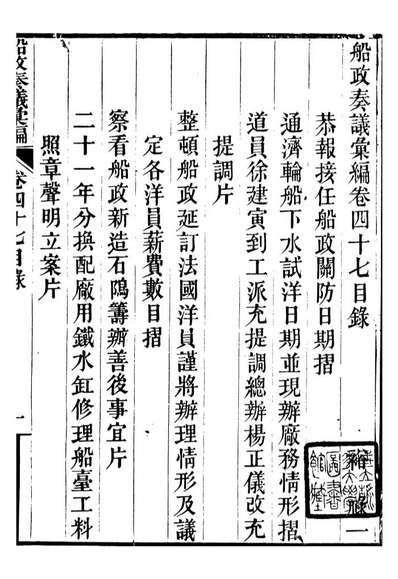 船政奏議彙編卷四十七目錄
恭報接任船政關防日期摺
通濟輪船下水試洋日期並現辦廠務情形摺
道員徐建寅到工派充提調總辦楊正儀改充
提調片
整頓船政延訂法國洋員謹將辦理情形及議
定各洋員薪費數目摺
察看船政新造石隖籌辦善後事宜片
二十一年分換配廠用鐵水缸修理船臺工料
照章聲明立案片
船政奏議彙編
卷四十七目錄
一